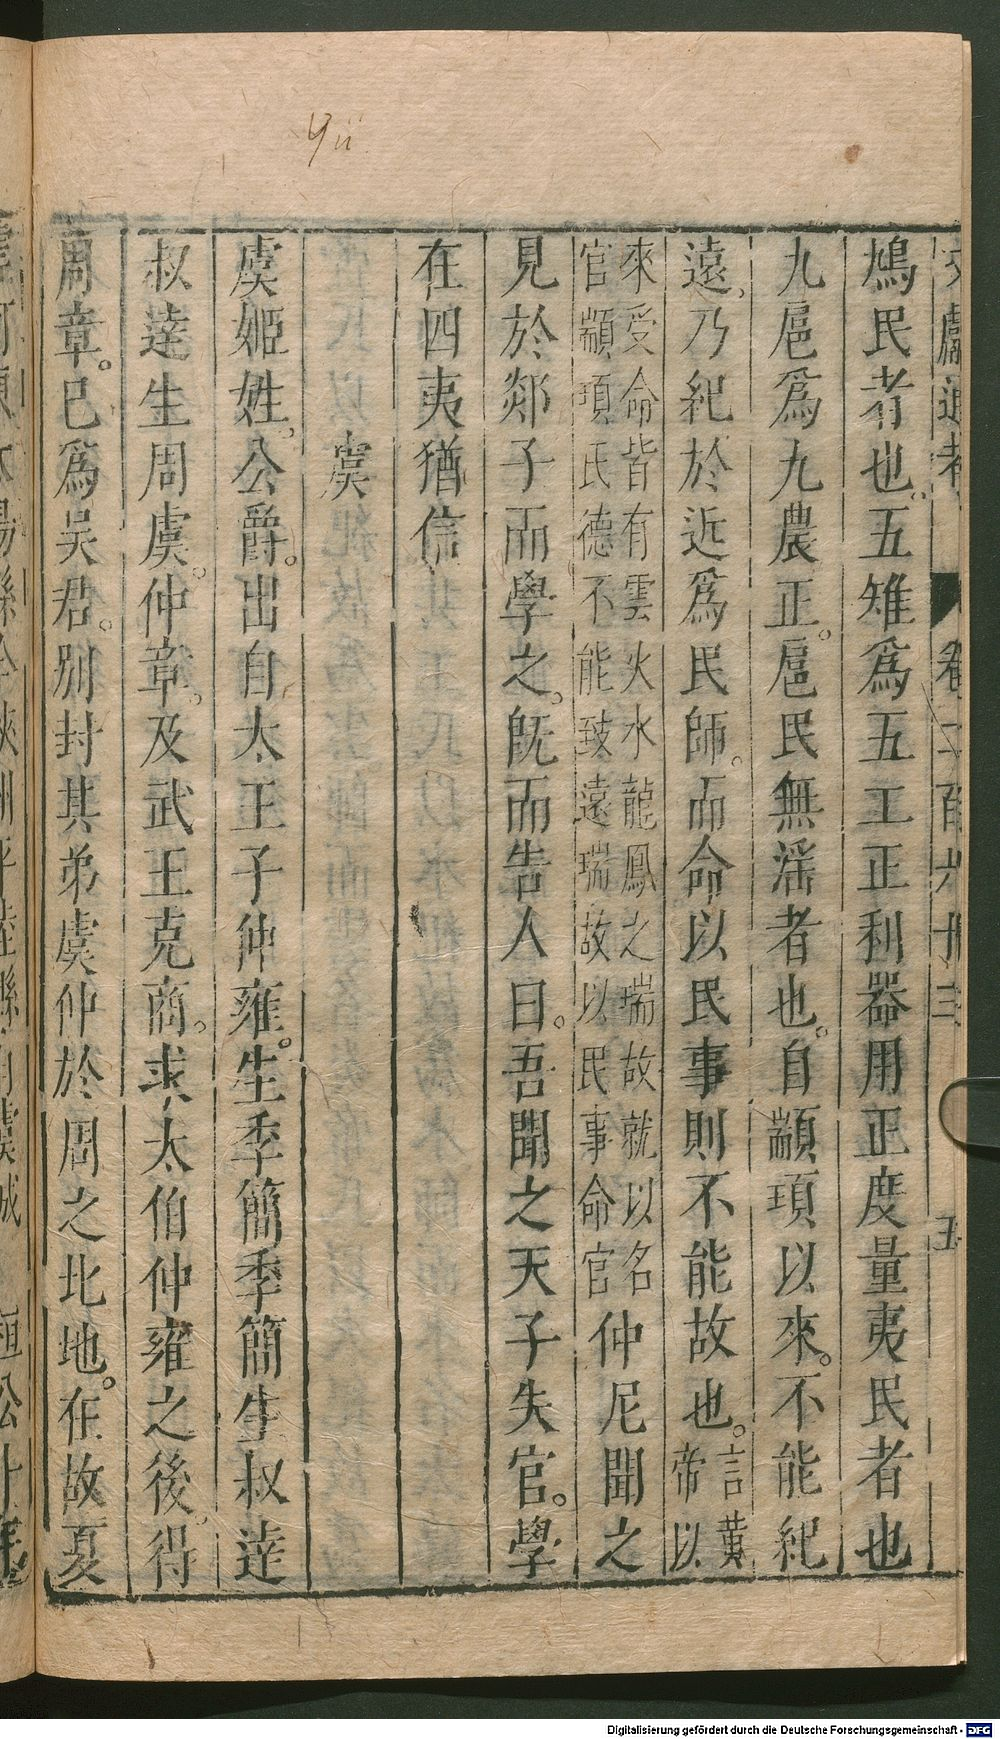 Yü
文獻通考 卷二百六十三 五
鳩民者也。五雉爲五工正利器用正度量夷民者也
九扈爲九農正。扈民無滛者也。自顓頊以來。不能紀
遠,乃紀於近爲民師。而命以民事則不能故也。言黃帝以
來受命皆有雲火水龍鳳之瑞故就以名
官顓頊氏德不能致遠瑞故以民事命官仲尼聞之
見於郯子而學之。旣而告人曰。吾聞之天子失官。學
在四夷猶信
虞
虞姬姓,公爵。出自太王子仲雍。生季簡季簡生叔逹
叔逹生周虞。仲章。及武王克商。求太伯仲雍之後。得
周章。已爲吴君。別封其弟虞仲於周之北地。在故夏
Digitalisierung gefördert durch die Deutsche Forschungsgemeinschaft - DFG